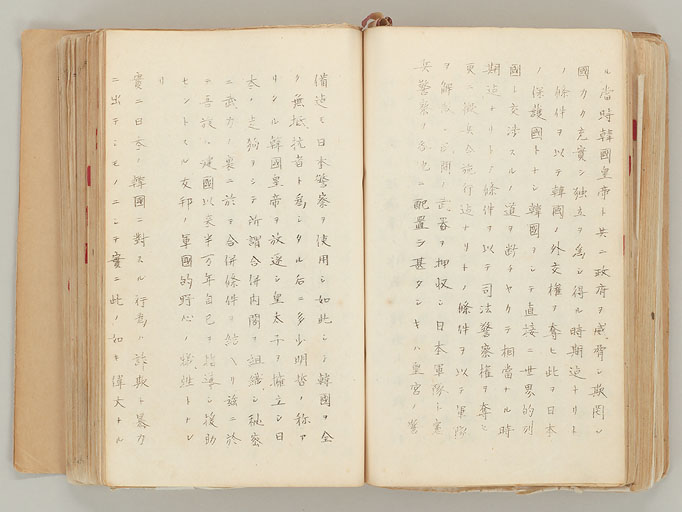 ル當時韓國皇帝ト共ニ政府ヲ威脅シ欺罔シ
國力ノ充實シ獨立ヲ爲シ得ル時期迄ナリト
ノ條件ヲ以テ韓國ノ外交權ヲ奪ヒ此ヲ日本
ノ保護國トナシ韓國ヲシテ直接ニ世界的列
國ト交渉スルノ道ヲ断チヤクテ相當ナル時
期迄ナリトノ條件ヲ以テ司法警察權ヲ奪ヒ
更ニ徴兵令施行迄ナリトノ條件ヲ以テ軍隊
ヲ解散シ民間ノ武器ヲ押収シ日本軍隊ト憲
兵警察ヲ各地ニ配置シ甚タシキハ皇宮ノ警
備迄モ日本警察ヲ使用シ如此シテ韓國ヲ全
ク無抵抗者ト爲シタル后ニ多少明哲ノ稱ア
リシル韓國皇帝ヲ放逐シ皇太子ヲ擁立シ日
本ノ走狗ヲシテ所謂合併内閣ヲ組織シ秘密
ニ武力ノ裏ニ於テ合併條件ヲ結ヘリ茲ニ於
テ吾族ハ建國以来半万年自己ヲ指導シ援助
セントスル友邦ノ軍國的野心ノ犠牲トナレ
リ
實ニ日本ハ韓國ニ對スル行爲ハ詐欺ト暴力
ニ出テシモノニシテ實ニ此ノ如キ偉大ナル